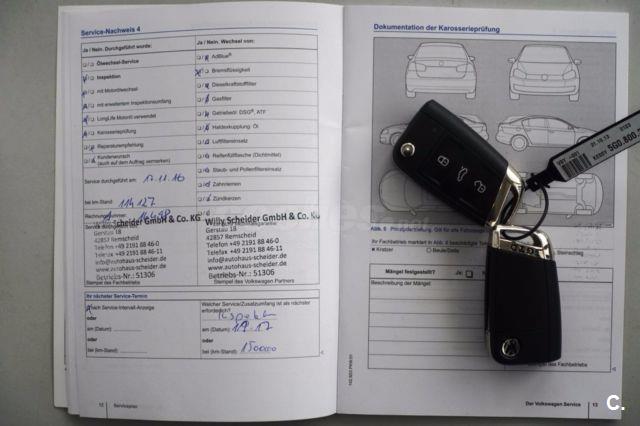 Service-Nachweis 4
Ja / Nein. Durchgeführt wurde:
Ölwechsel-Service
Inspektion
mit Motorölwechsel
mit erweitertem Inspektionsumfang
LongLife Motoröl verwendet
Karosserieprüfung
Reparaturempfehlung
Kundenwunsch
(auch auf dem Auftrag vermerken)
Service durchgeführt am: 17.11.16
bei km-Stand: 114127
Rechnungsnummer:
Ja / Nein. Wechsel von:
AdBlue®
Bremsflüssigkeit
Dieselkraftstofffilter
Gasfilter
Getriebeöl DSG®, ATF
Haldexkupplung Öl
Luftfiltereinsatz
Reifenfüllflasche (Dichtmittel)
Staub- und Pollenfiltereinsatz
Zahnriemen
Zündkerzen
Willy Scheider GmbH & Co. KG
Gerstau 18
42857 Remscheid
Telefon +49 2191 88 46-0
Telefax +49 2191 88 46-11
info@autohaus-scheider.de
www.autohaus-scheider.de
Betriebs-Nr.: 51306
Stempel des Fachbetriebs
Willy Scheider GmbH & Co. KG
Gerstau 18
42857 Remscheid
Telefon +49 2191 88 46-0
Telefax +49 2191 88 46-11
info@autohaus-scheider.de
www.autohaus-scheider.de
Betriebs-Nr.: 51306
Stempel des Volkswagen Partners
Ihr nächster Service-Termin
nach Service-Intervall-Anzeige
oder
am (Datum):
oder
bei km-Stand:
Welcher Service/Zusatzumfang ist als nächster
erforderlich?
am (Datum):
oder
bei (km-Stand): 150000
12 Serviceplan
Dokumentation der Karosserieprüfung
Ihr Fachbetrieb markiert in Abb. 6
Kratzer
Beule/Delle
Steinschlag
Mängel festgestellt?
Ja
Beschreibung der Mängel:
des Fachbetriebs
Der Volkswagen Service 13
C.